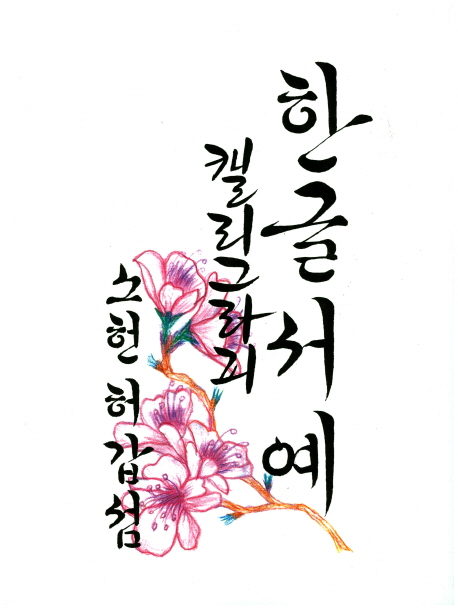 한글서예
캘리그라피
소헌 허갑섬